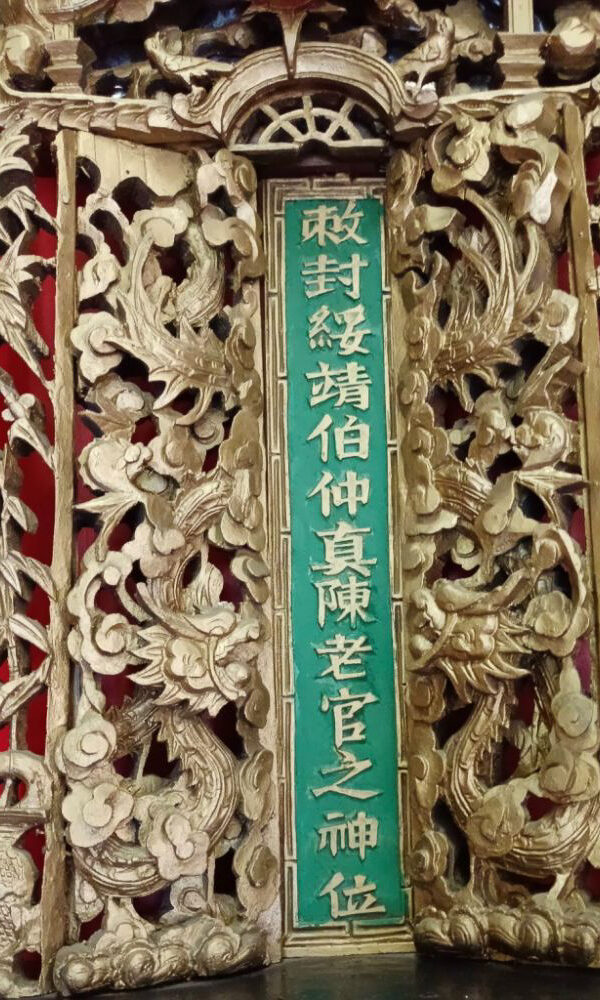 敕封綏靖伯仲真陳老官之神位